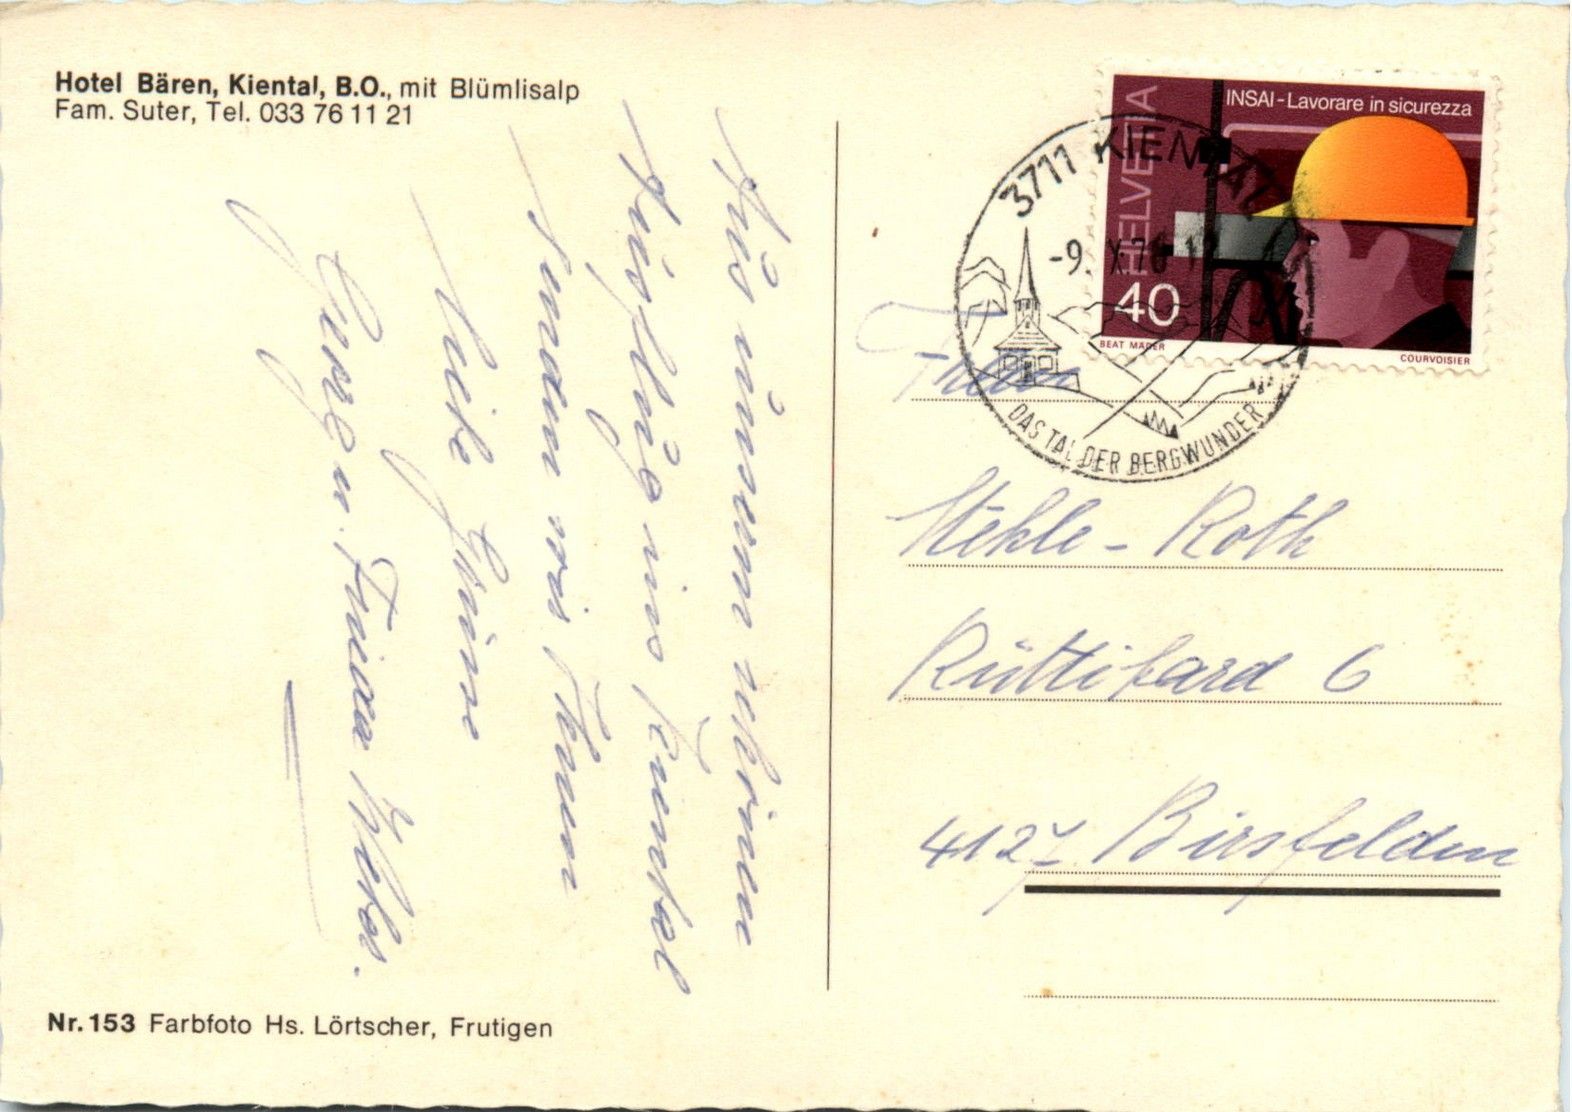 Hotel Bären, Kiental, B.O., mit Blümlisalp
Fam. Suter, Tel. 033 76 11 21
Aus unserm schönen
Ausflug ins Kiental
senden wir Ihnen
liebe Grüsse
u.
Nr. 153 Farbfoto Hs. Lörtscher, Frutigen
HELVETIA
INSAI - Lavorare in sicurezza
40
BEAT MÄDER
COURVOISIER
3711 KIENTAL
-9. X. 78
DAS TAL DER BERGWUNDER
Stehle - Roth
Rüttihard 6
4127 Birsfelden